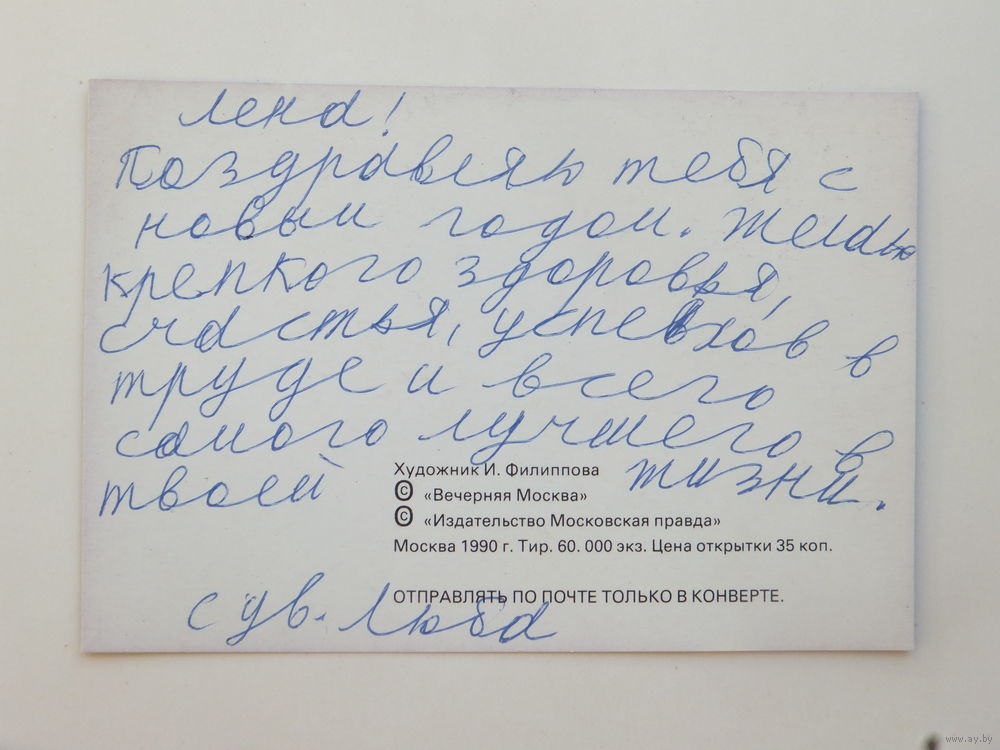 Лена!
Поздравляю тебя с
новым годом. Желаю
крепкого здоровья,
счастья, успехов в
труде и всего
самого лучшего в
твоей жизни.
Художник И. Филиппова
© «Вечерняя Москва»
© «Издательство Московская правда»
Москва 1990 г. Тир. 60. 000 экз. Цена открытки 35 коп.
ОТПРАВЛЯТЬ ПО ПОЧТЕ ТОЛЬКО В КОНВЕРТЕ.
с ув. Люба
www.ay.by